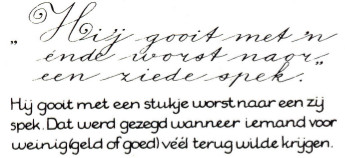 „ Hij gooit met 'n
énde worst naor
een ziede spek.”
Hij gooit met een stukje worst naar een zij
spek. Dat werd gezegd wanneer iemand voor
weinig (geld of goed) véél terug wilde krijgen.